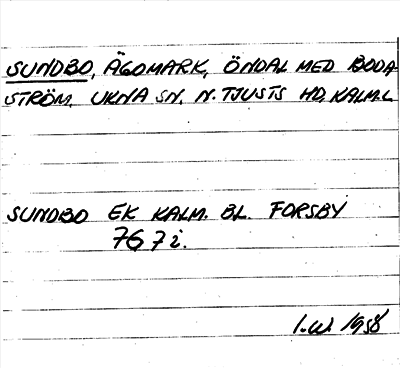 SUNDBO, ÄGOMARK, ÖNDAL MED BODA
STRÖM. UKNA SN. N. TJUSTS HD, KALM. L
SUNDBO EK KALM. BL. FORSBY
767 i.
I.W. 1958